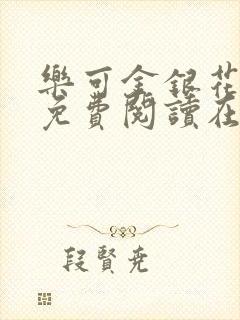 樂可金銀花
免費閱讀在
段賢堯